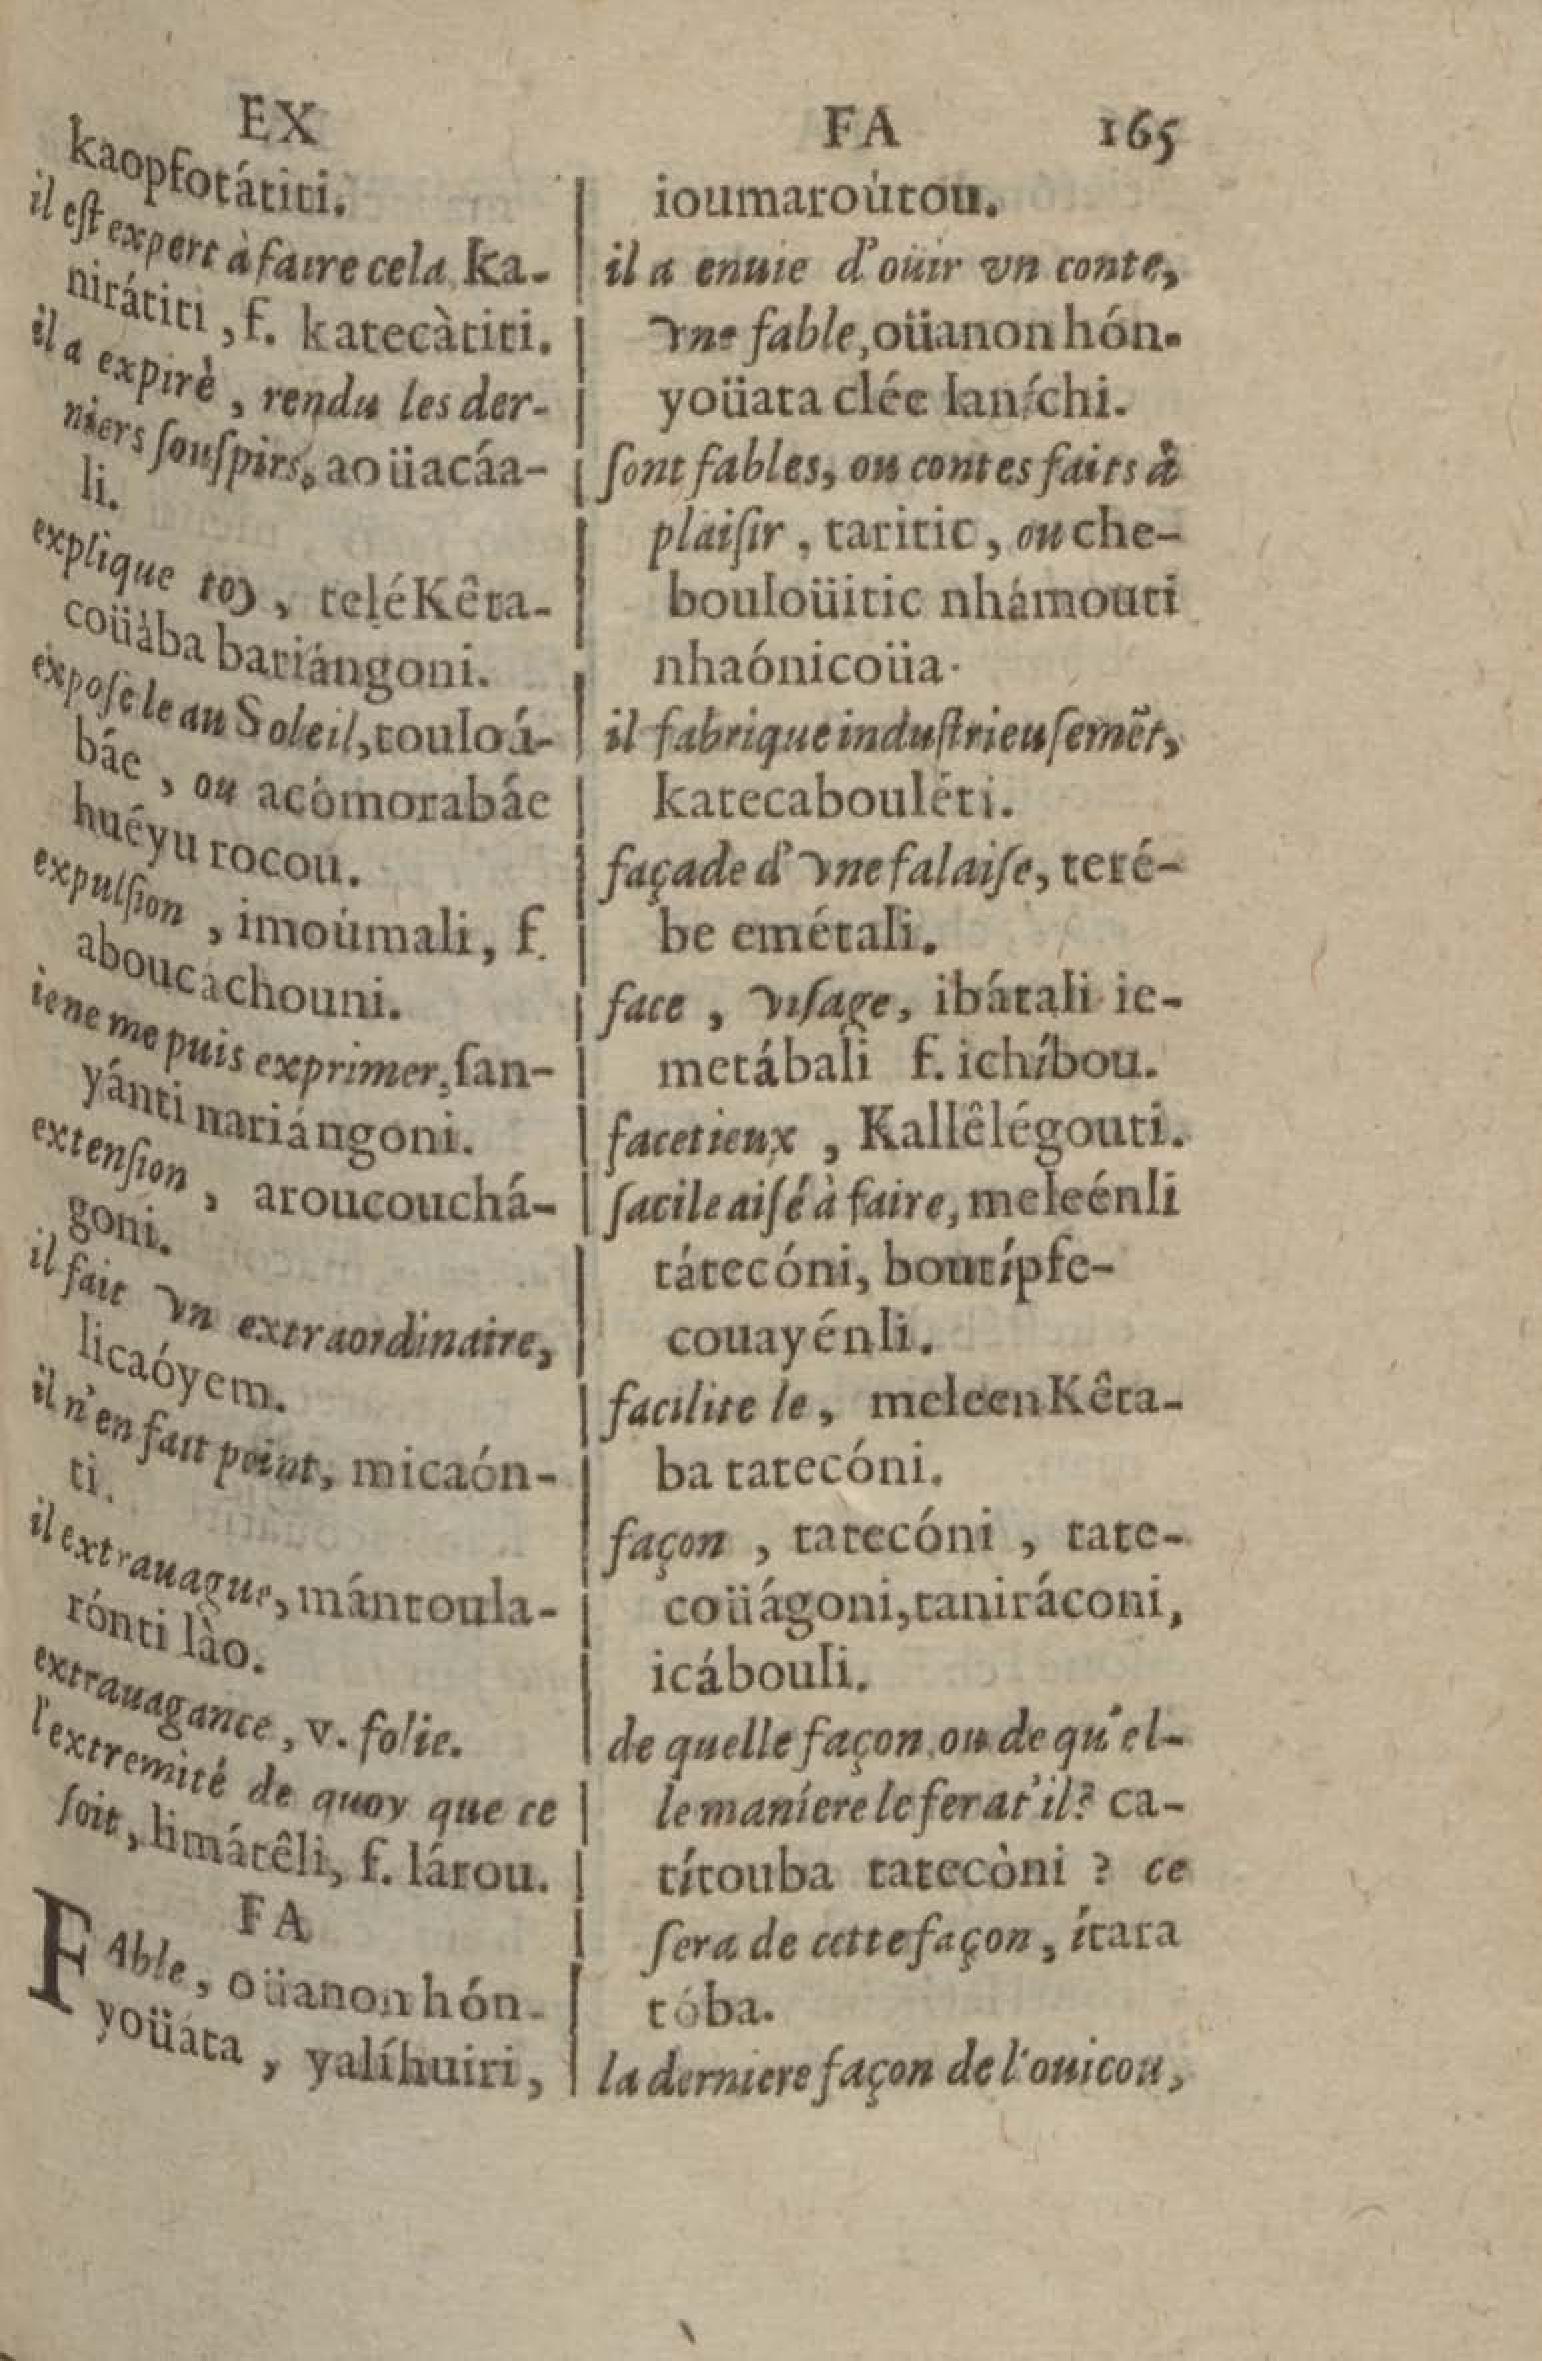 EX
kaopfotátiti.
il eſt expert à faire cela, Ka-
nirátiti, f. katecàtiti.
il a expirè, rendu les der-
niers ſouſpirs, aoüacáa-
li.
explique toy, teléKêta-
coüàba bariángoni.
expoſe le au Soleil, touloá-
báe, ou acómorabáe
huéyu rocou.
expulſion, imoúmali, f.
aboucáchouni.
ie ne me puis exprimer, ſan-
yánti nariángoni.
extenſion, aroucouchá-
goni.
il fait vn extraordinaire,
licaóyem.
il n'en fait point, micaón-
ti.
il extrauague, mántoula-
rónti lào.
extrauagance, v. folie.
l'extremité de quoy que ce
ſoit, limátêli, f. lárou.
FA
FAble, oüanon hón-
yoüáta, yalíhuiri,
FA 165
ioumaroùtou.
il a enuie d'oüir vn conte,
vne fable, oüanon hón-
yoüata clée laníchi.
ſont fables, ou contes faits à
plaiſir, taritic, ou che-
bouloüitic nhámouti
nhaónicoüa.
il fabrique induſtrieuſemẽt,
katecabouléti.
façade d'vne falaiſe, teré-
be emétali.
face, viſage, ibátali ie-
metábali f. ichíbou.
facetieux, Kallêlégouti.
facile aiſé à faire, meleénli
tátecóni, boutípfe-
couayénli.
facilite le, meleenKêta-
ba tatecóni.
façon, tatecóni, tate-
coüágoni, taniráconi,
icábouli.
de quelle façon, ou de qu'el-
le maníere le ferat'il? ca-
títouba tatecòni ? ce
ſera de cette façon, ítara
tóba.
la derniere façon de l'ouicou,